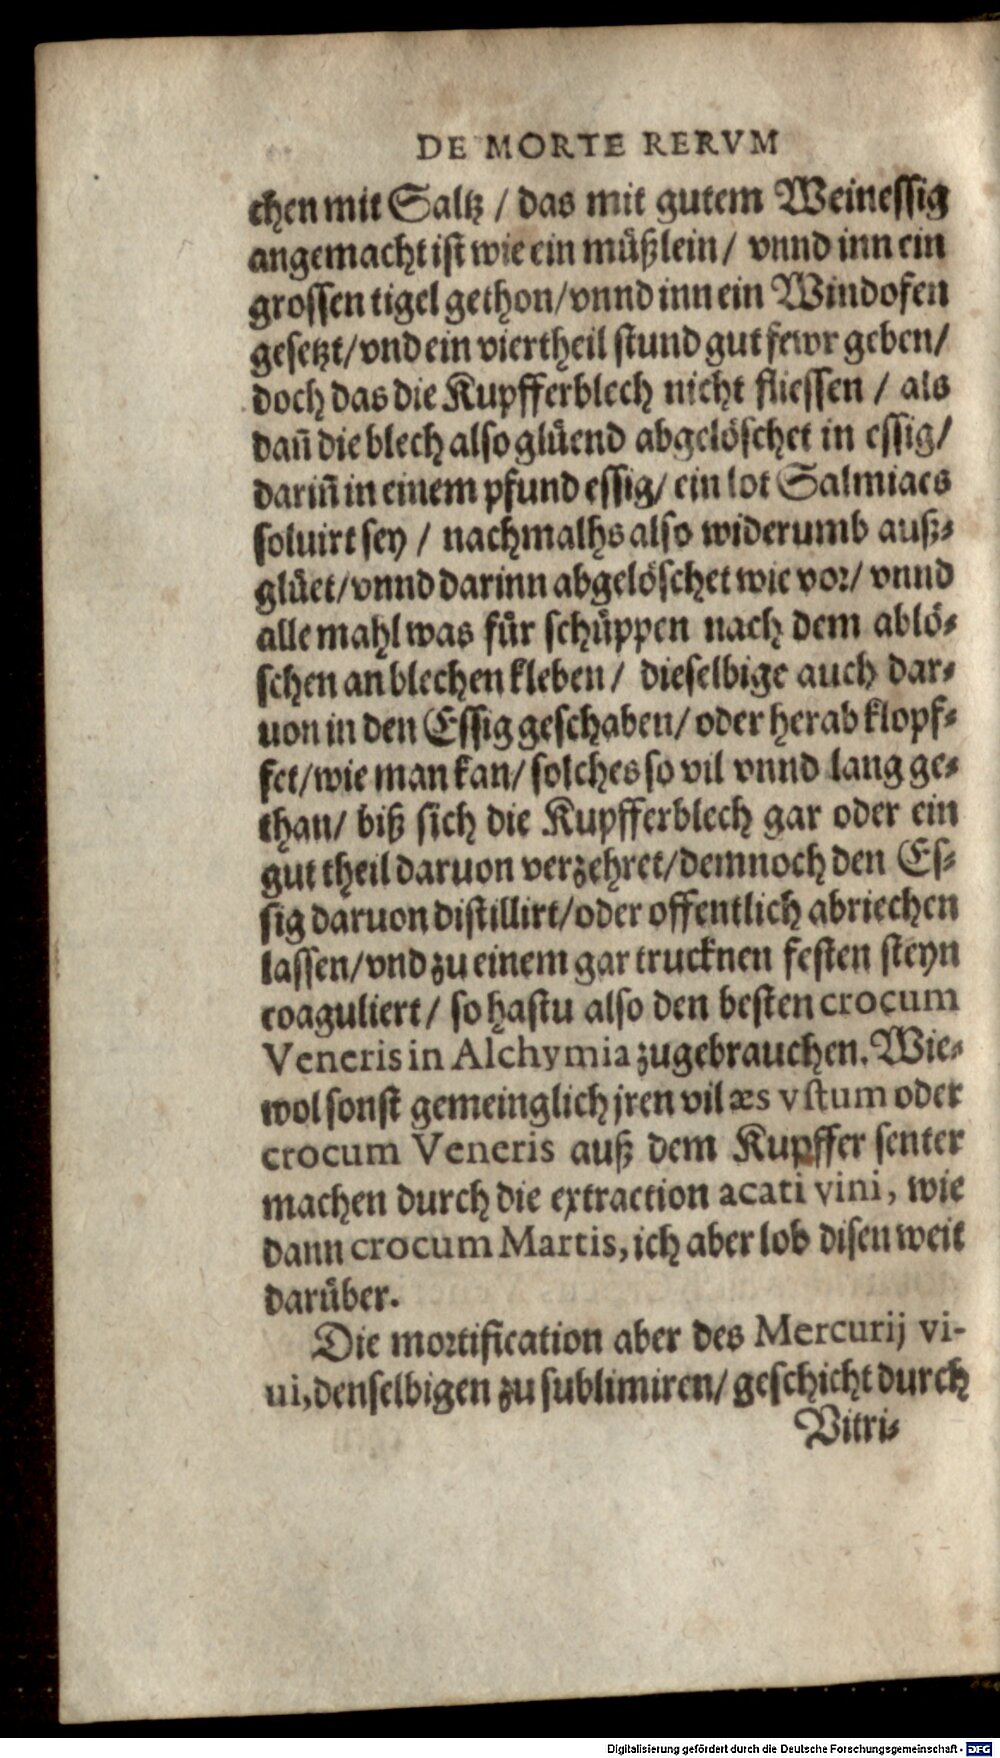 DE MORTE RERVM
chen mit Saltz / das mit gutem Weinessig
angemacht ist wie ein müßlein / vnnd inn ein
grossen tigel gethon / vnnd inn ein Windofen
gesetzt / vnd ein viertheil stund gut fewr geben /
doch das die Kupfferblech nicht fliessen / als
dañ die blech also glüend abgelöschet in essig /
dariñ in einem pfund essig / ein lot Salmiacs
soluirt sey / nachmalhs also widerumb auß-
glüet / vnnd darinn abgelöschet wie vor / vnnd
alle mahl was für schüppen nach dem ablö-
schen an blechen kleben / dieselbige auch dar-
uon in den Essig geschaben / oder herab klopf-
fet / wie man kan / solches so vil vnnd lang ge-
than / biß sich die Kupfferblech gar oder ein
gut theil daruon verzehret / demnoch den Es-
sig daruon distillirt / oder offentlich abriechen
lassen / vnd zu einem gar trucknen festen steyn
coaguliert / so hastu also den besten crocum
Veneris in Alchymia zugebrauchen. Wie-
wol sonst gemeinglich jren vil æs vstum oder
crocum Veneris auß dem Kupffer senter
machen durch die extraction acati vini, wie
dann crocum Martis, ich aber lob disen weit
darüber.
Die mortification aber des Mercurij vi-
ui, denselbigen zu sublimiren / geschicht durch
Vitri-
Digitalisierung gefördert durch die Deutsche Forschungsgemeinschaft - DFG